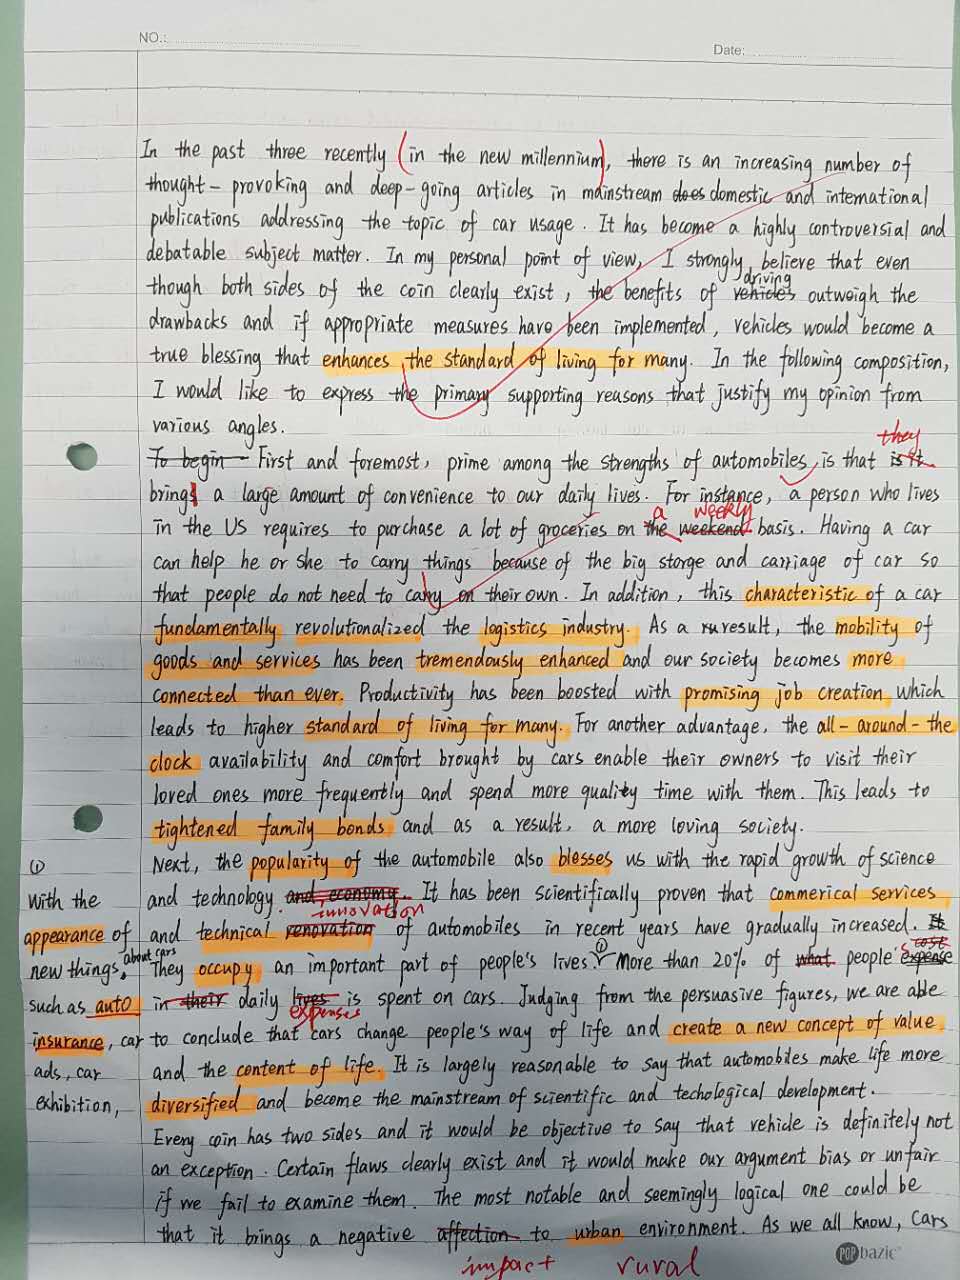 NO.:
Date:
In the past three recently (in the new millennium), there is an increasing number of
thought-provoking and deep-going articles in mainstream does domestic and international
publications addressing the topic of car usage. It has become a highly controversial and
debatable subject matter. In my personal point of view, I strongly believe that even
driving
though both sides of the coin clearly exist, the benefits of vehicles outweigh the
drawbacks and if appropriate measures have been implemented, vehicles would become a
true blessing that enhances the standard of living for many. In the following composition,
I would like to express the primary supporting reasons that justify my opinion from
various angles.
they
To begin First and foremost, prime among the strengths of automobiles, is that is it
brings a large amount of convenience to our daily lives. For instance, a person who lives
a weekly
in the US requires to purchase a lot of groceries on the weekend basis. Having a car
can help he or she to carry things because of the big storge and carriage of car so
that people do not need to carry on their own. In addition, this characteristic of a car
fundamentally revolutionalized the logistics industry. As a result, the mobility of
goods and services has been tremendously enhanced and our society becomes more
connected than ever. Productivity has been boosted with promising job creation which
leads to higher standard of living for many. For another advantage, the all-around-the
clock availability and comfort brought by cars enable their owners to visit their
loved ones more frequently and spend more quality time with them. This leads to
tightened family bonds and as a result, a more loving society.
Next, the popularity of the automobile also blesses us with the rapid growth of science
and technology and economy. It has been scientifically proven that commerical services
innovation
and technical renovation of automobiles in recent years have gradually increased. It
They occupy an important part of people's lives. ① More than 20% of what people's expense
cost
in their daily lives is spent on cars. Judging from the persuasive figures, we are able
expenses
to conclude that cars change people's way of life and create a new concept of value
and the content of life. It is largely reasonable to say that automobiles make life more
diversified and become the mainstream of scientific and techological development.
Every coin has two sides and it would be objective to say that vehicle is definitely not
an exception. Certain flaws clearly exist and it would make our argument bias or unfair
if we fail to examine them. The most notable and seemingly logical one could be
that it brings a negative affection to urban environment. As we all know, cars
impact rural
①
With the
appearance of
new things about cars,
such as auto
insurance, car
ads, car
exhibition,
POP bazic